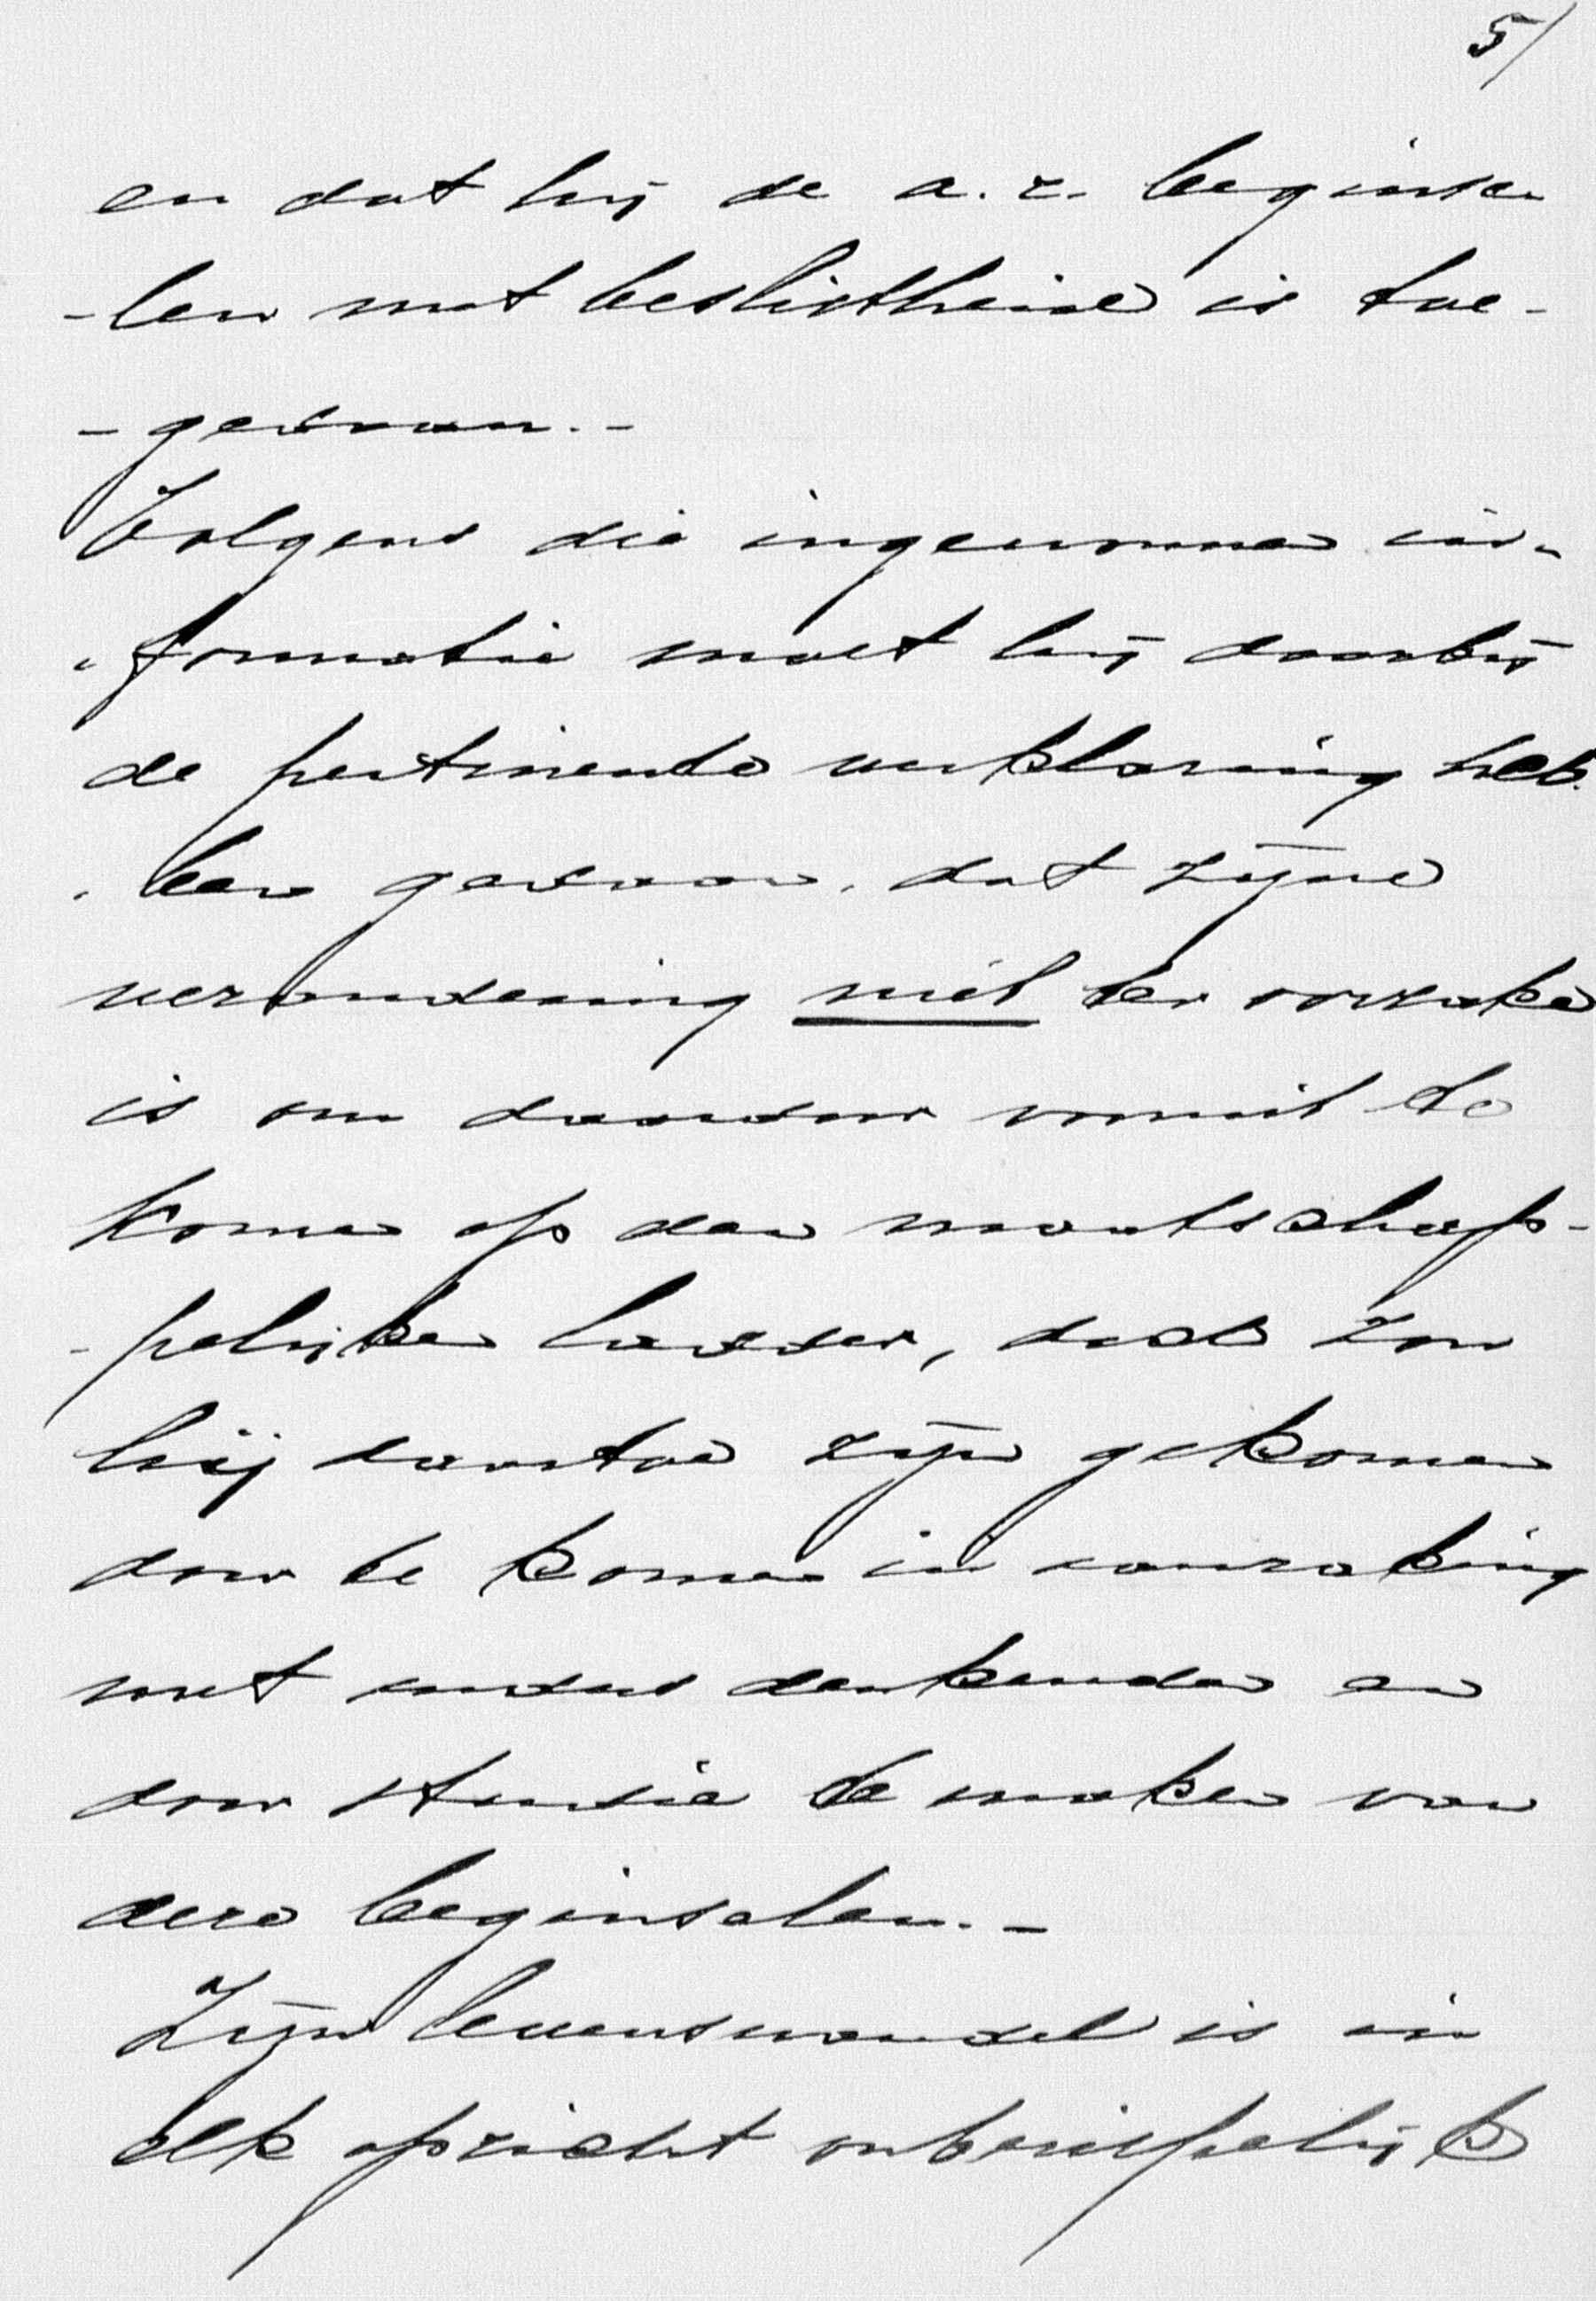 5/
en dat hij de a.r. beginse
-len met beslistheid is toe-
-gedaan.-
Volgens die ingewonnen in-
-formatie moet hij daarbij
de pertinente verklaring heb-
-ben gedaan, dat zijne
verandering niet ter oorzake
is om daardoor vooruit te
komen op den maatschap-
-pelijken ladder, doch zou
hij daartoe zijn gekomen
door te komen in aanraking
met andersdenkenden en
door studie te maken van
deze beginselen.-
Zijn levenswandel is in
elk opzicht onberispelijk